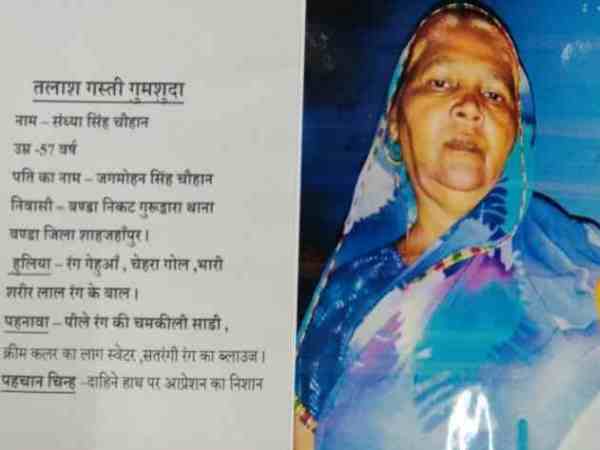 तलाश गस्ती गुमशुदा
नाम – संध्या सिंह चौहान
उम्र -57 वर्ष
पति का नाम – जगमोहन सिंह चौहान
निवासी – बण्डा निकट गुरूद्वारा थाना
बण्डा जिला शाहजहाँपुर।
हुलिया – रंग गेहुआँ , चेहरा गोल ,भारी
शरीर लाल रंग के बाल।
पहनावा – पीले रंग की चमकीली साडी ,
क्रीम कलर का लाग स्वेटर ,सतरंगी रंग का ब्लाउज।
पहचान चिन्ह –दाहिने हाथ पर आप्रेशन का निशान